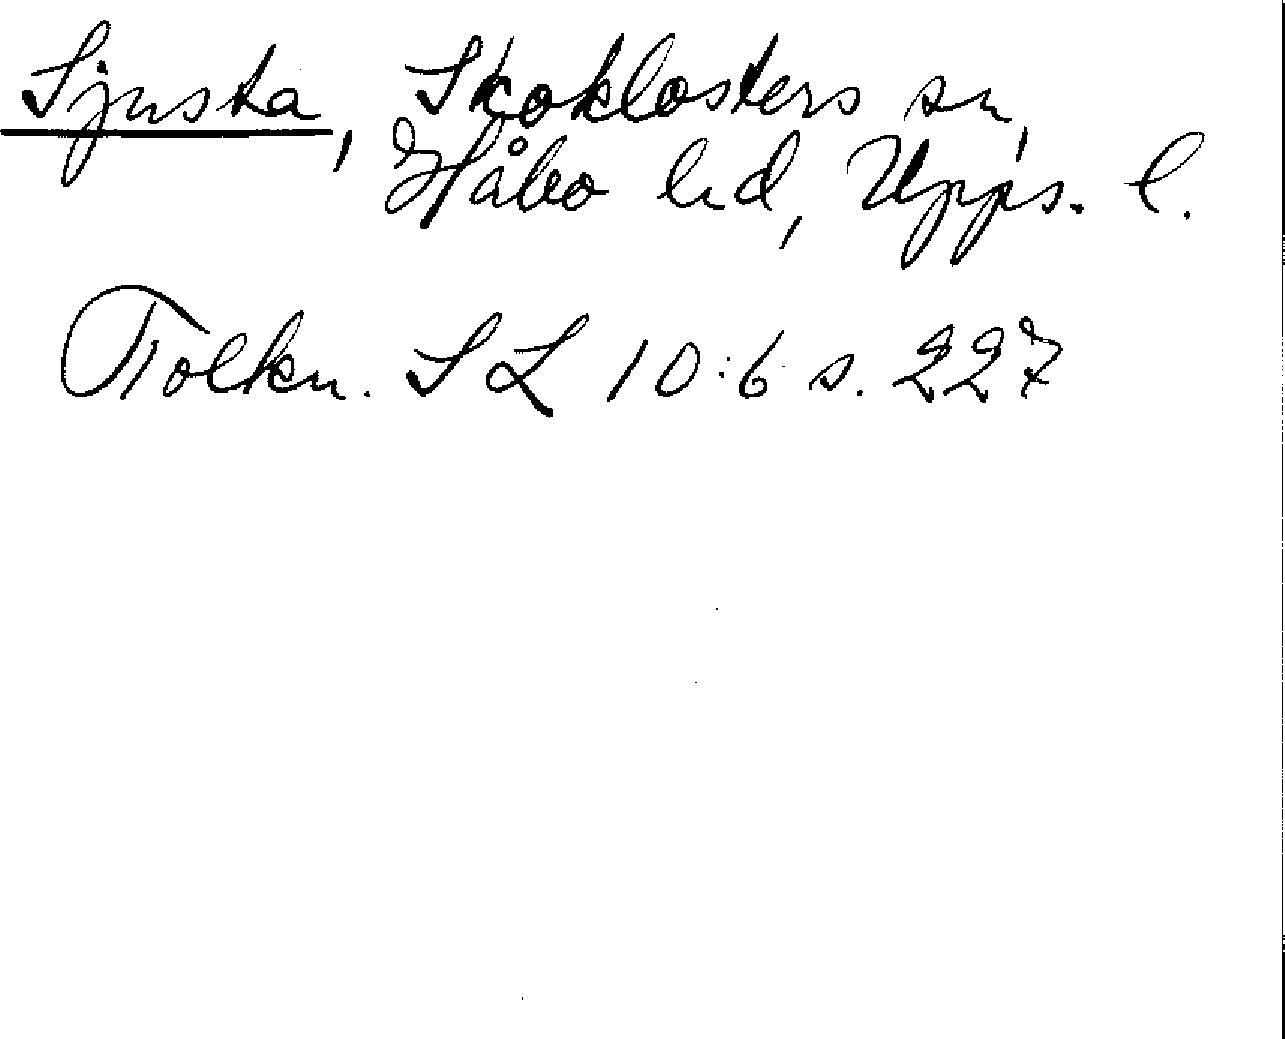 Sjusta, Skoklosters sn,
Håbo hd, Upps. l.
Tolkn. SL 10:6 s. 227